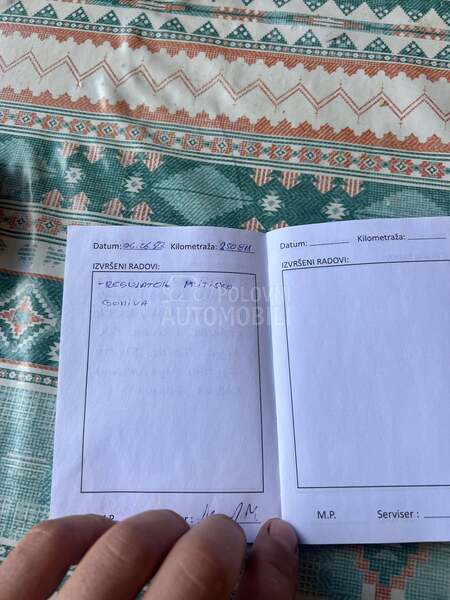 Datum: 06.06.23 Kilometraža: 250811
IZVRŠENI RADOVI:
-REGULATOR PRITISKA
GORIVA
POLOVNI
AUTOMOBILI
Datum: Kilometraža:
IZVRŠENI RADOVI:
M.P. Serviser :